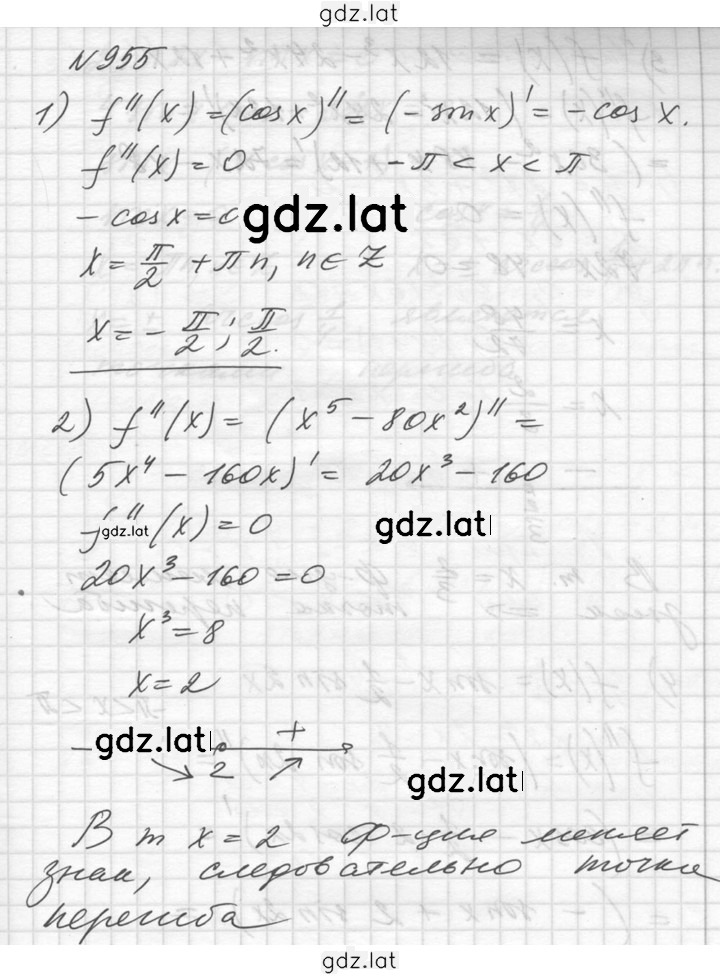 gdz.lat
N 955
1) f''(x) = (cos x)'' = (- sin x)' = - cos x.
f''(x) = 0 - π < x < π
- cos x = 0
gdz.lat
x = π/2 + πn, n ∈ Z
x = - π/2 ; π/2.
2) f''(x) = (x⁵ - 80x²)'' =
(5x⁴ - 160x)' = 20x³ - 160
f''(x) = 0
gdz.lat
gdz.lat
20x³ - 160 = 0
x³ = 8
x = 2
- +
gdz.lat
2
gdz.lat
В т x = 2 ф-ция меняет
знак, следовательно точка
перегиба
gdz.lat